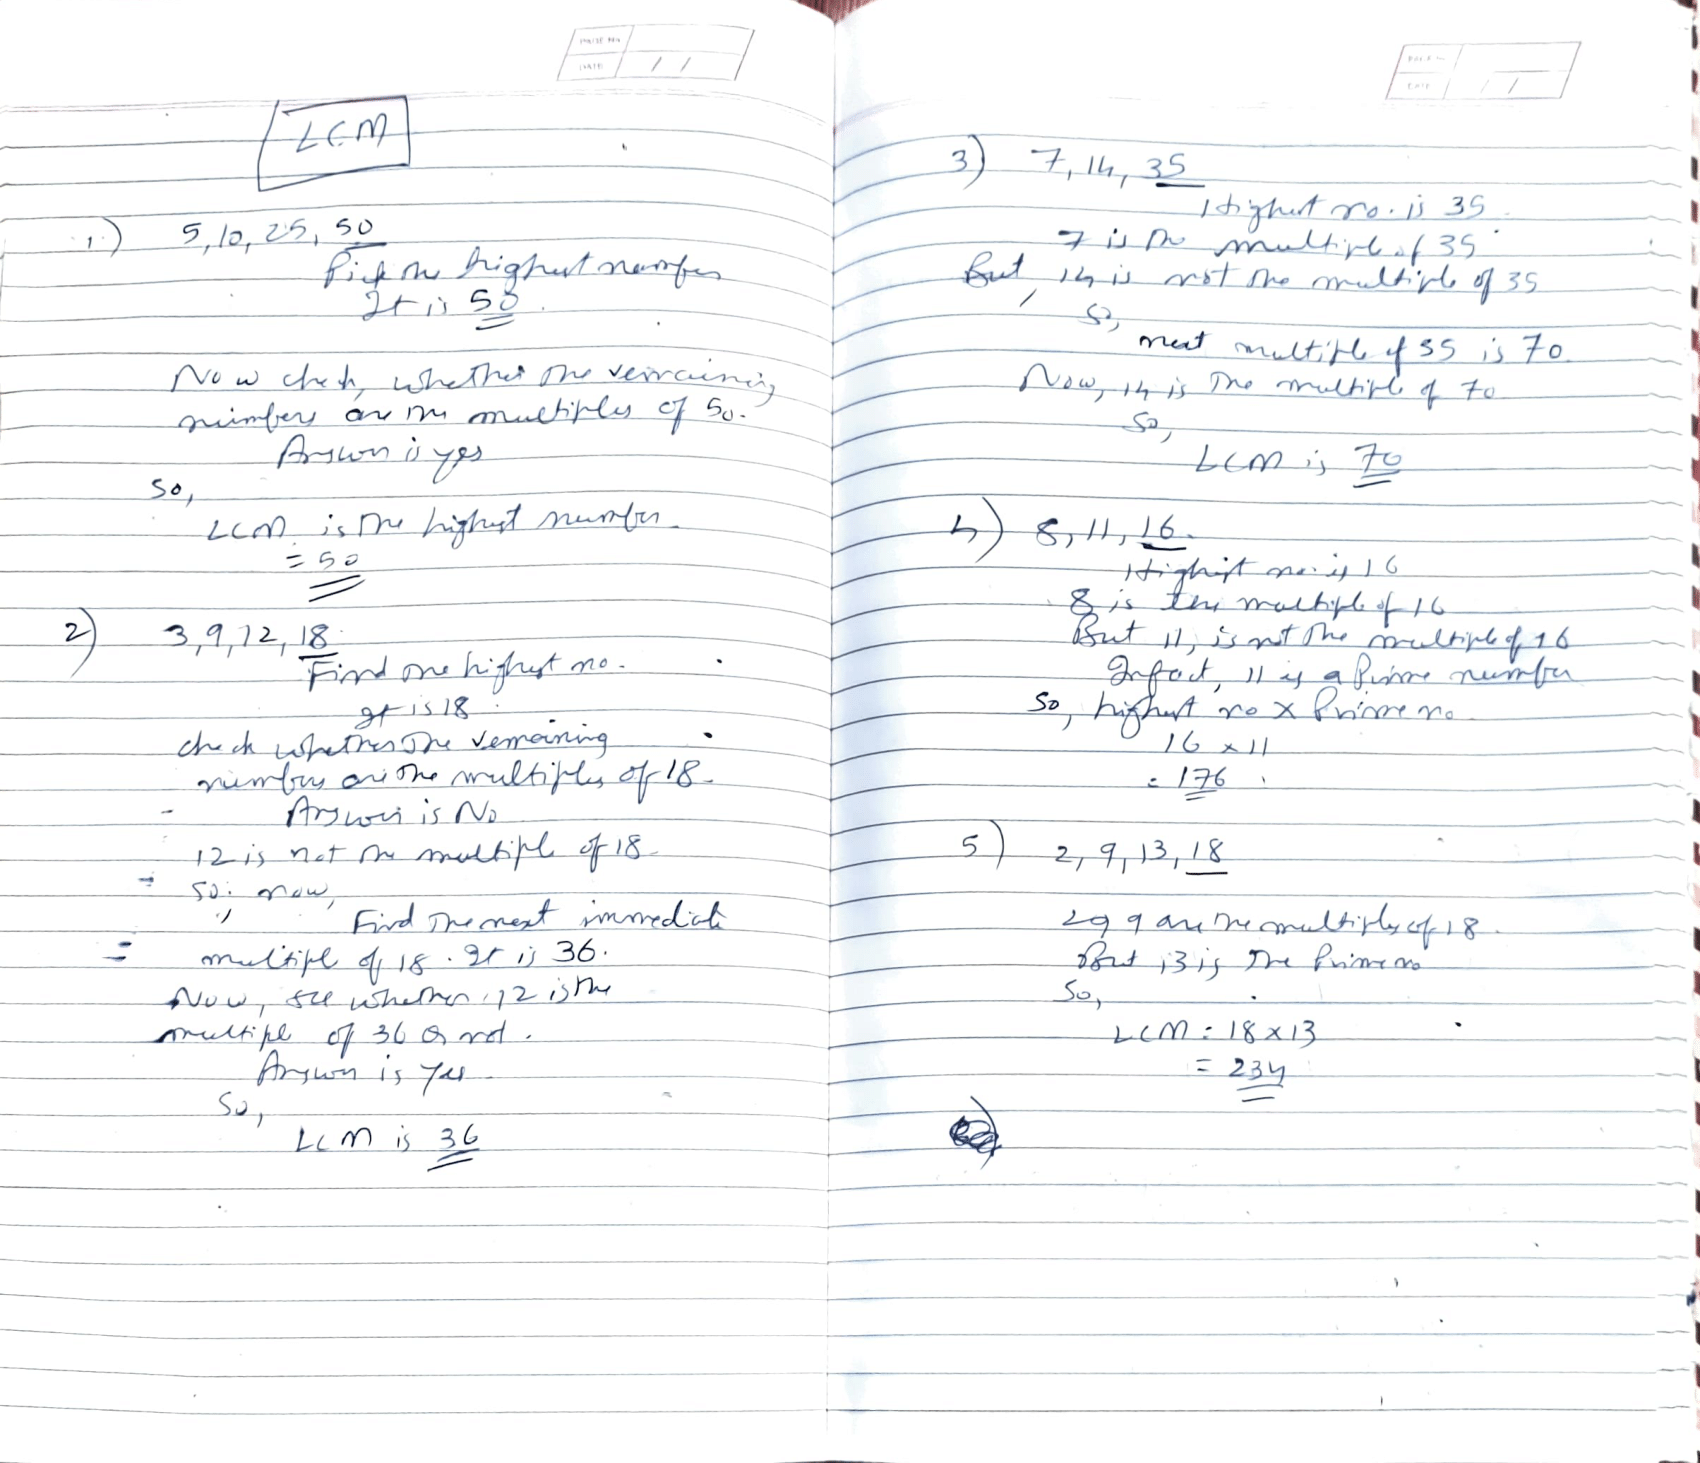 PAGE No.
DATE / /
LCM
1.) 5, 10, 25, 50
Pick the highest number
It is 50.
Now check, whether the remaining
numbers are the multiples of 50.
Answer is yes
So,
LCM is the highest number
= 50
2) 3, 9, 12, 18
Find the highest no.
It is 18
check whether the remaining
numbers are the multiples of 18.
Answer is No
12 is not the multiple of 18
So, now,
Find the next immediate
multiple of 18. It is 36.
Now, see whether 12 is the
multiple of 36 or not.
Answer is Yes.
So,
LCM is 36
PAGE No.
DATE / /
3) 7, 14, 35
Highest no. is 35.
7 is the multiple of 35
But, 14 is not the multiple of 35
So,
next multiple of 35 is 70.
Now, 14 is the multiple of 70
So,
LCM is 70
4) 8, 11, 16.
Highest no. is 16
8 is the multiple of 16
But 11, is not the multiple of 16
Infact, 11 is a Prime number
So, highest no x Prime no
16 x 11
= 176
5) 2, 9, 13, 18
2 & 9 are the multiples of 18.
But 13 is the Prime no
So,
LCM = 18 x 13
= 234